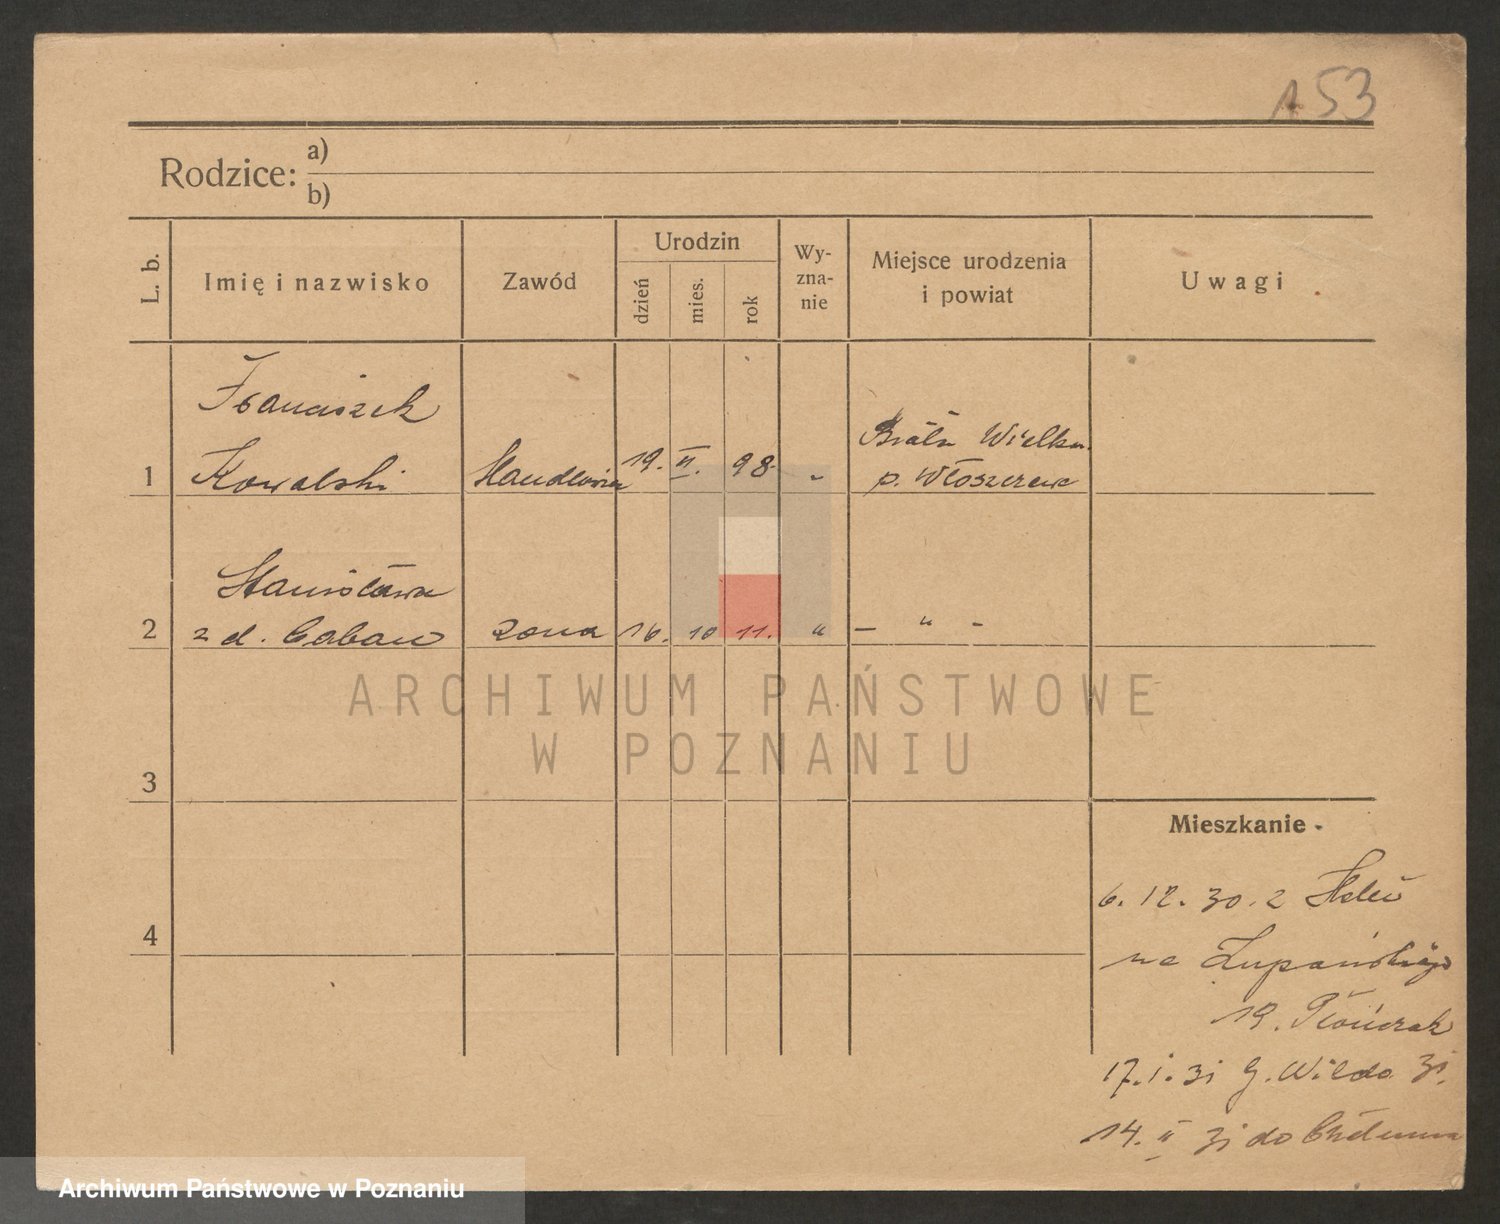 153
Rodzice: a)
b)
L. b.
Imię i nazwisko
Zawód
Urodzin
dzień
mies.
rok
Wy-
zna-
nie
Miejsce urodzenia
i powiat
Uwagi
Franciszek
1 Kowalski Handlowiec 19. II. 98 „ Biała Wielka
p. Włoszczowa
Stanisława
2 z d. Caban żona 16. 10 11. „ — „ -
3
4
ARCHIWUM PAŃSTWOWE
W POZNANIU
Mieszkanie
6. 12. 30. z
na Żupańskiego
19.
17. I. 31 G. Wilda 31.
14. II 31 do Chełmna
Archiwum Państwowe w Poznaniu